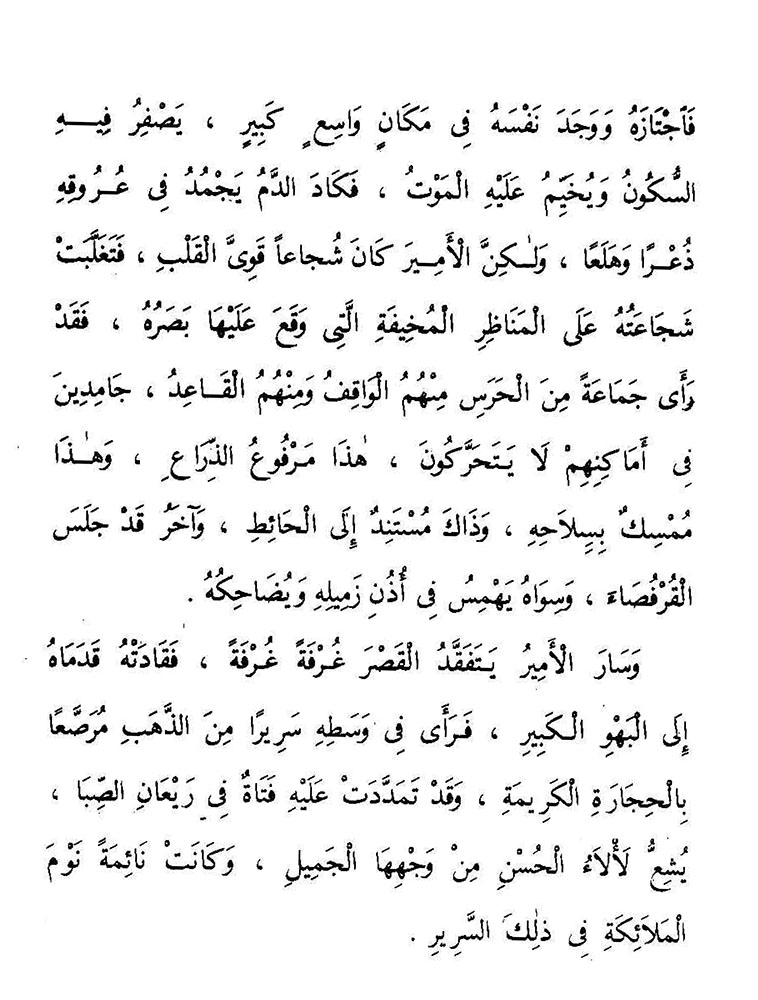 فَاجْتَازَهُ وَوَجَدَ نَفْسَهُ فِى مَكَانٍ وَاسِعٍ كَبِيرٍ ، يَصْفِرُ فِيــهِ
السُّكُونُ وَيُخَيِّمُ عَلَيْهِ الْمَوْتُ ، فَكَادَ الدَّمُ يَجْمُدُ فِى عُـرُوقِهِ
ذُعْـرًا وَهَلَعًا ، وَلٰـكِنَّ الْأَمِـيرَ كَانَ شُجاعاً قَوِىَّ الْقَلْبِ ، فَتَغَلَّبَتْ
شَجَاعَتُهُ عَلَى الْمَنَاظِرِ الْمُخِيفَةِ الَّتِى وَقَعَ عَلَيْهَا بَصَرُهُ ، فَقَدْ
رَأَى جَمَاعَةً مِنَ الْحَرَسِ مِنْهُمُ الْوَاقِفُ وَمِنْهُمُ الْقَـاعِدُ ، جَامِدِينَ
فِى أَمَاكِنِهِمْ لَا يَـتَحَرَّكُونَ ، هٰذَا مَـرْفُوعُ الذِّرَاعِ ، وَهٰـذَا
مُمْسِكٌ بِسِلَاحِهِ ، وَذَاكَ مُسْتَنِدٌ إِلَى الْحَائِطِ ، وَآخَرُ قَدْ جَلَسَ
الْقُرْفُصَاءَ ، وَسِوَاهُ يَهْمِسُ فِى أُذُنِ زَمِيلِهِ وَيُضَاحِكُهُ .
وَسَارَ الْأَمِيرُ يَـتَفَقَّدُ الْقَصْرَ غُـرْفَةً غُـرْفَةً ، فَقَادَتْهُ قَدَمَاهُ
إِلَى الْبَهْوِ الْـكَبِيرِ ، فَـرَأَى فِى وَسَطِهِ سَرِيرًا مِنَ الذَّهَبِ مُرَصَّعًا
بِالْحِجَارَةِ الْكَرِيمَةِ ، وَقَدْ تَمَدَّدَتْ عَلَيْهِ فَتَاةٌ فِى رَيْعَانِ الصِّبَا ،
يُشِعُّ لَأْلَاءُ الْحُسْنِ مِنْ وَجْهِهَا الْجَمِيلِ ، وَكَانَتْ نَائِمَةً نَوْمَ
الْمَلَائِكَةِ فِى ذٰلِكَ السَّرِيرِ .